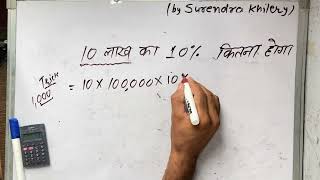 (by Surendra Khilery)
10 लाख का 10% कितना होगा
Trick
1,000
= 10 × 100,000 × 10%